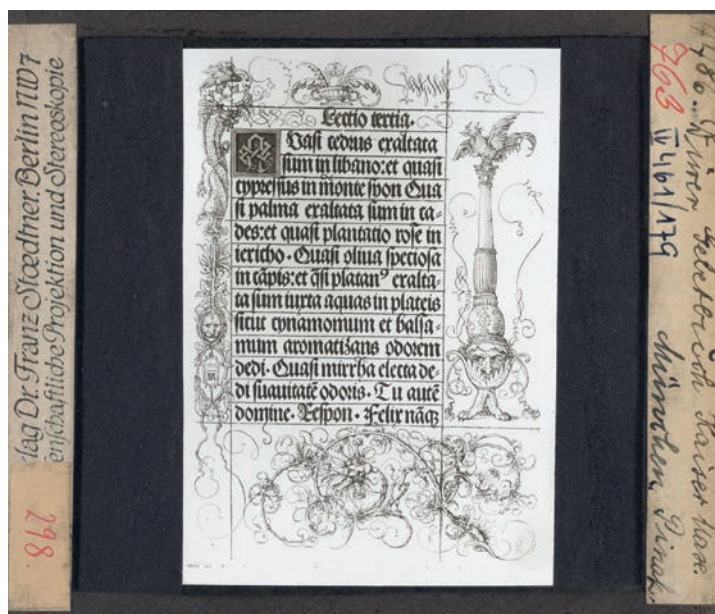 lag Dr. Franz Stœdtner, Berlin NW 7
enschaftliche Projektion und Stereoskopie
298
Lectio tertia.
QVasi cedrus exaltata
sum in libano: et quasi
cypressus in monte syon Qua
si palma exaltata sum in ca-
des: et quasi plantatio rose in
iericho. Quasi oliua speciosa
in cāpis: et q̄si platanꝰ exalta-
ta sum iuxta aquas in plateis
sicut cynamomum et balsa-
mum aromatizans odorem
dedi. Quasi mirrha electa de-
di suauitatē odoris. Tu autē
domine. Respon. Felix nāqꝫ
4780. Dürer Gebetbuch Kaiser Max.
763 IV 461/179
München, Pinak.